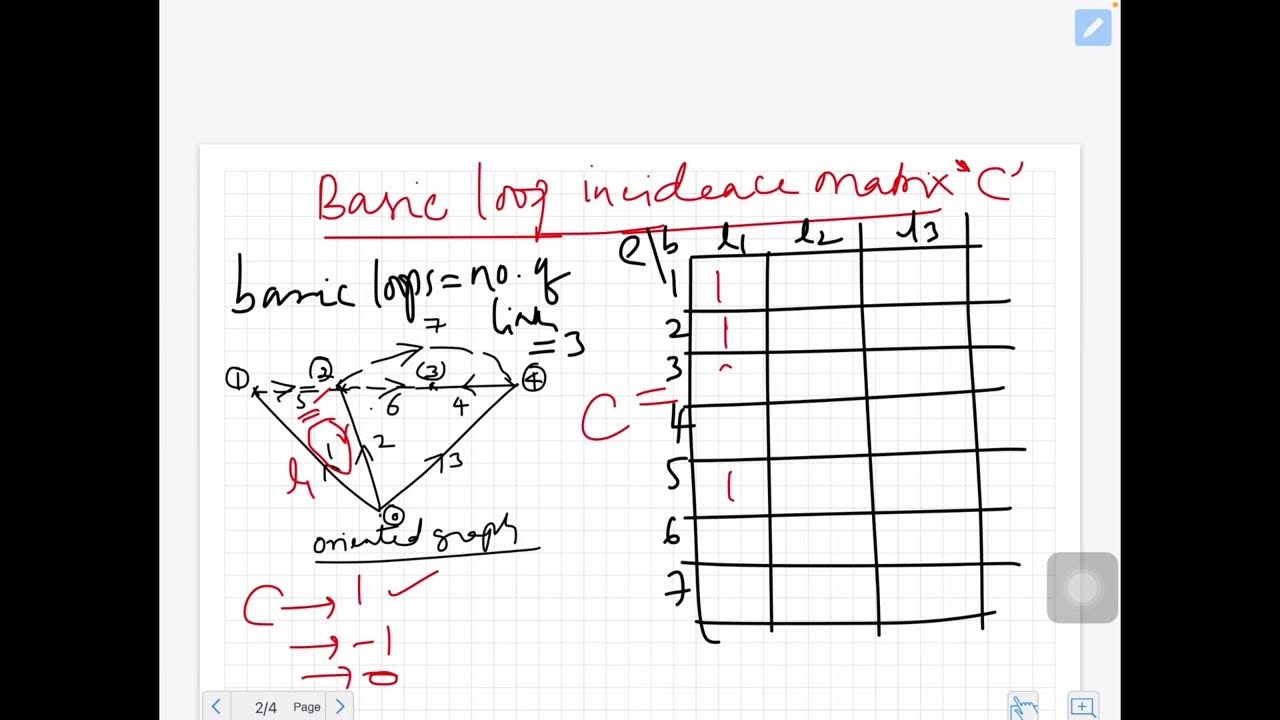 Basic loop incideace matrix "C'
basic loops = no. of
links
= 3
7
① ② (3) ④
5 6 4
1 2
3
l1
⓪
oriented graph
C → 1 ✓
→ -1
→ 0
C =
e\b l1 l2 l3
1 1
2 1
3
4
5 1
6
7
2/4 Page